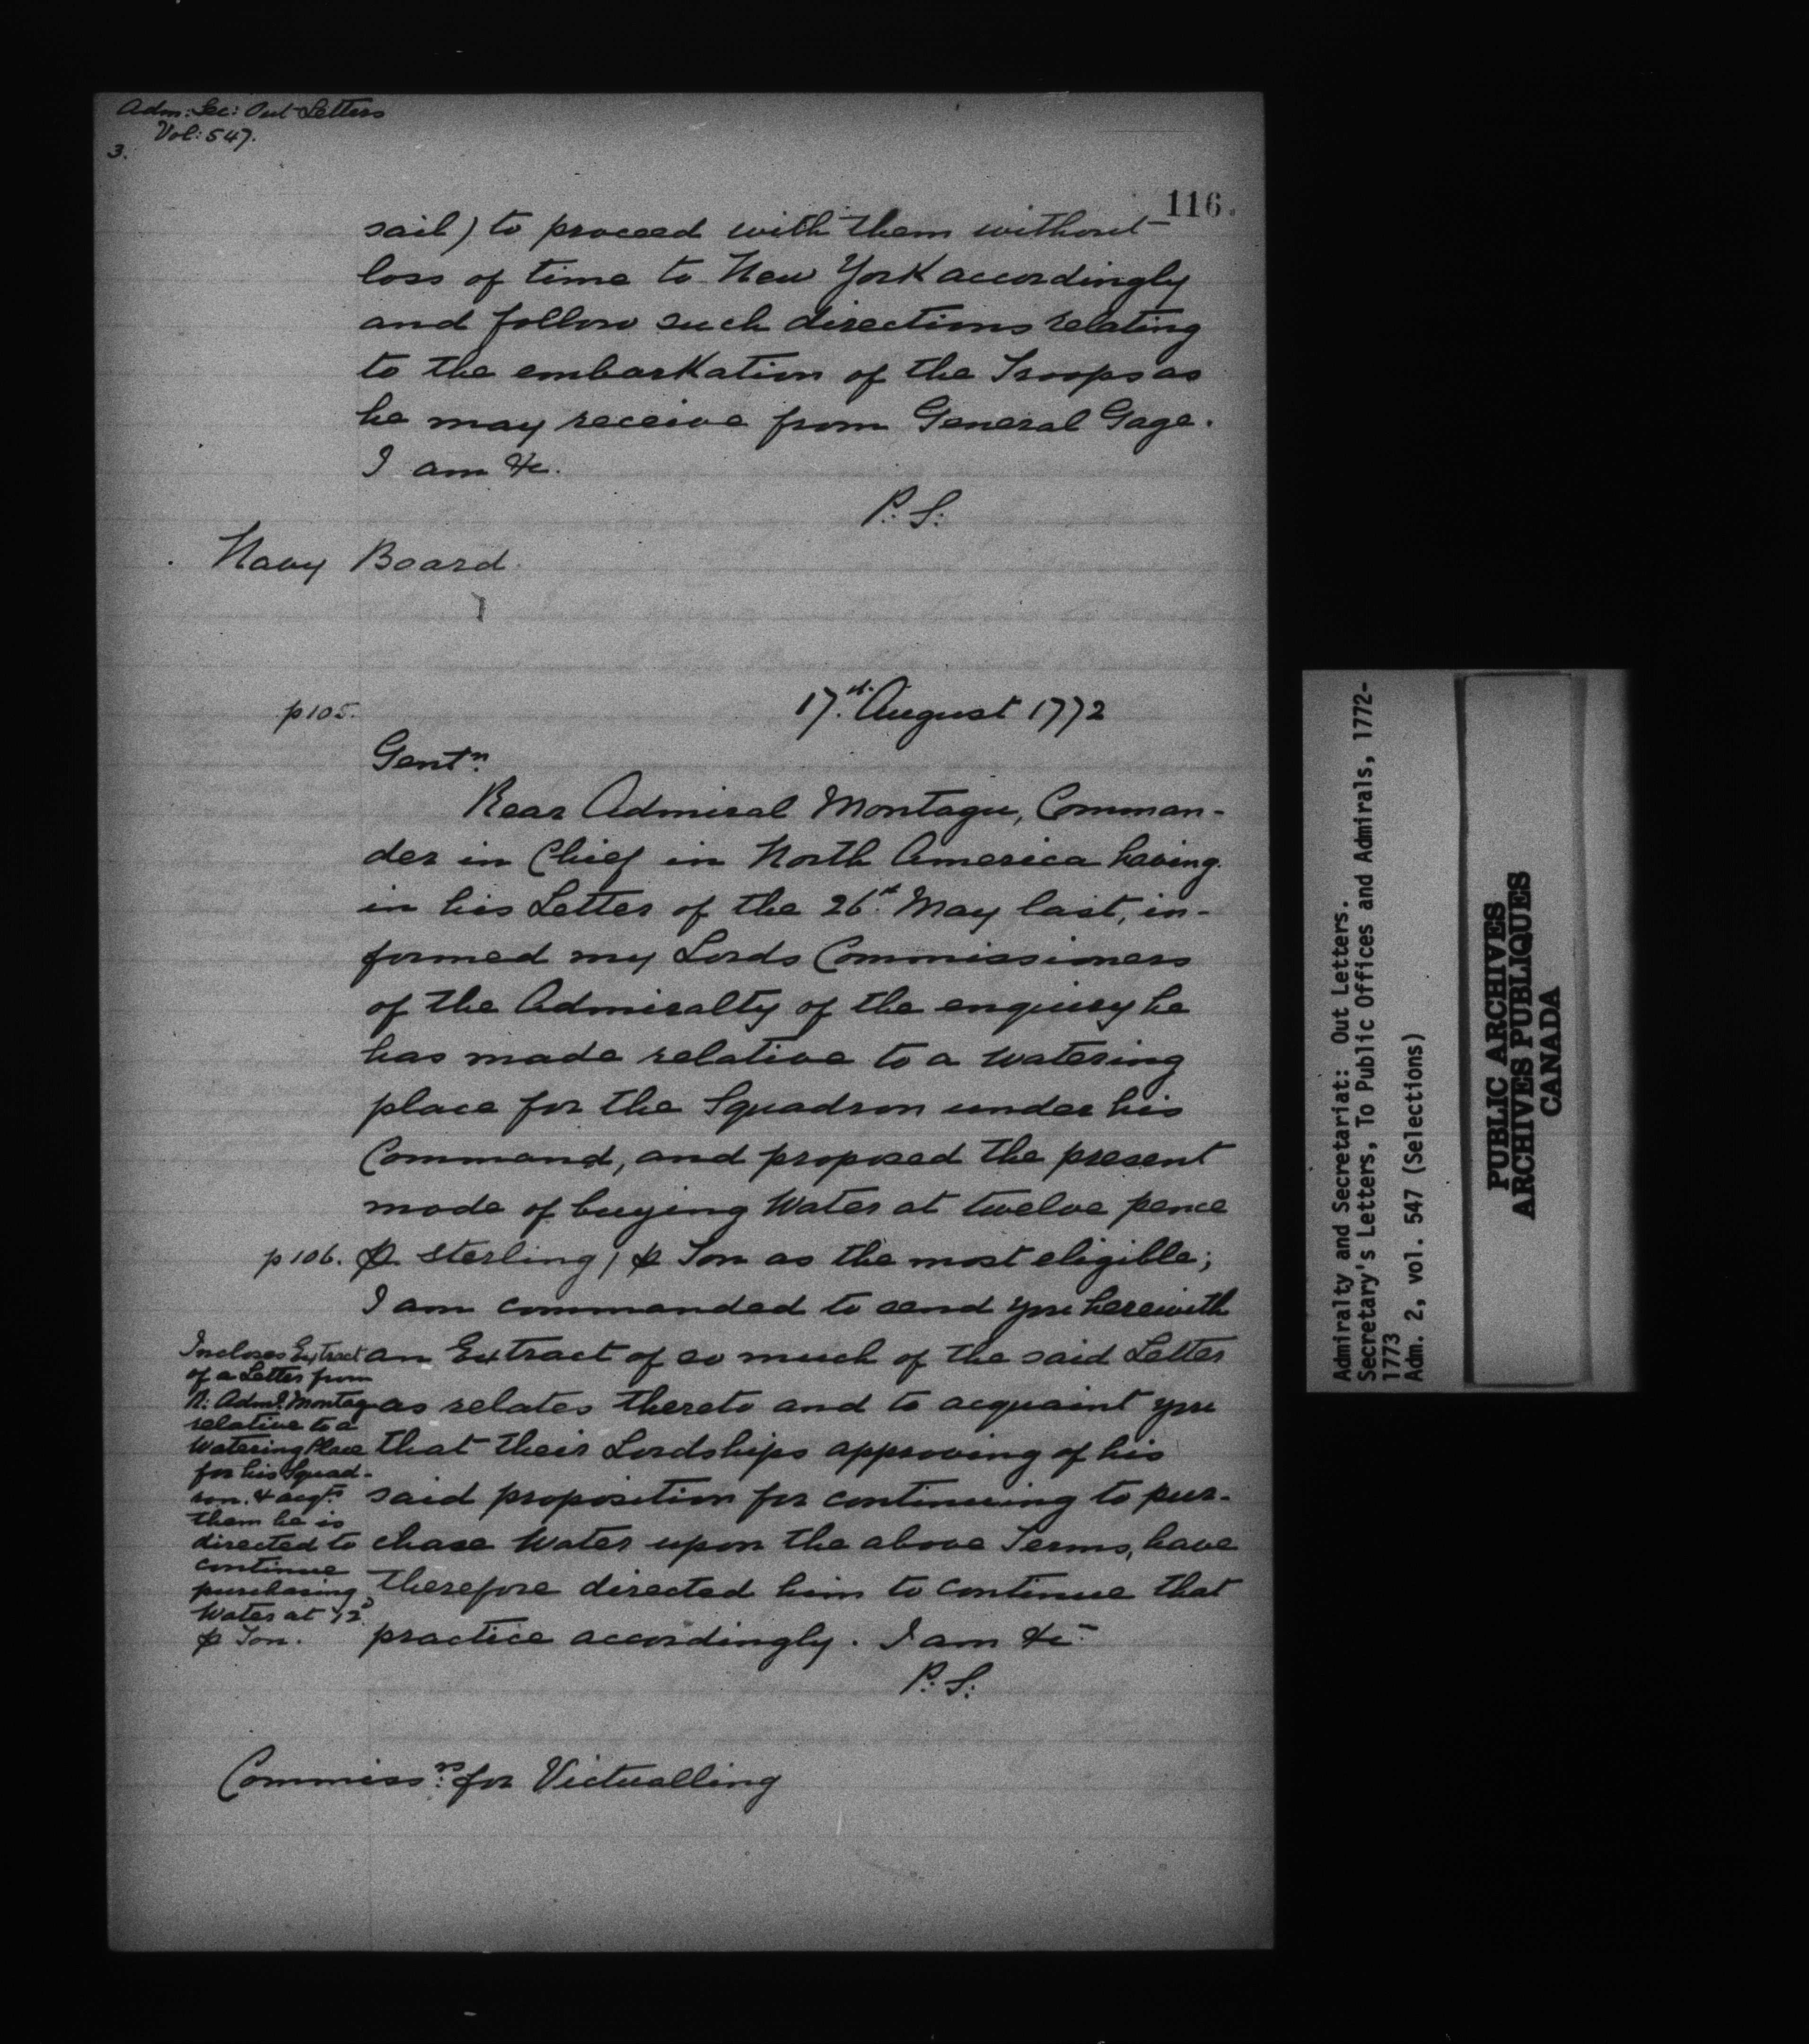 Adm: Sec: Out Letters
Vol: 547.
3.
116.
sail) to proceed with them without
loss of time to New York accordingly
and follow such directions relating
to the embarkation of the Troops as
he may receive from General Gage.
I am &c.
P: S:
Navy Board.
p 105.
17th. August 1772
Gentn.
Rear Admiral Montagu, Comman-
der in Chief in North America having
in his Letter of the 26th. May last, in-
formed my Lords Commissioners
of the Admiralty of the enquiry he
has made relative to a watering
place for the Squadron under his
Command, and proposed the present
mode of buying Water at twelve pence
p 106.
sterling, ⅌ Ton as the most eligible;
I am commanded to send you herewith
an Extract of so much of the said Letter
as relates thereto and to acquaint you
that their Lordships approving of his
said proposition for continuing to pur-
chase Water upon the above Terms, have
therefore directed him to continue that
practice accordingly. I am &c
P: S:
Incloses Extract
of a Letter from
R: Adml. Montagu
relative to a
Watering Place
for his Squad-
ron. & acqts.
them he is
directed to
continue
purchasing
Water at 12d.
⅌ Ton.
Commissrs. for Victualling
Admiralty and Secretariat: Out Letters.
Secretary's Letters, To Public Offices and Admirals, 1772-
1773
Adm. 2, vol. 547 (Selections)
PUBLIC ARCHIVES
ARCHIVES PUBLIQUES
CANADA